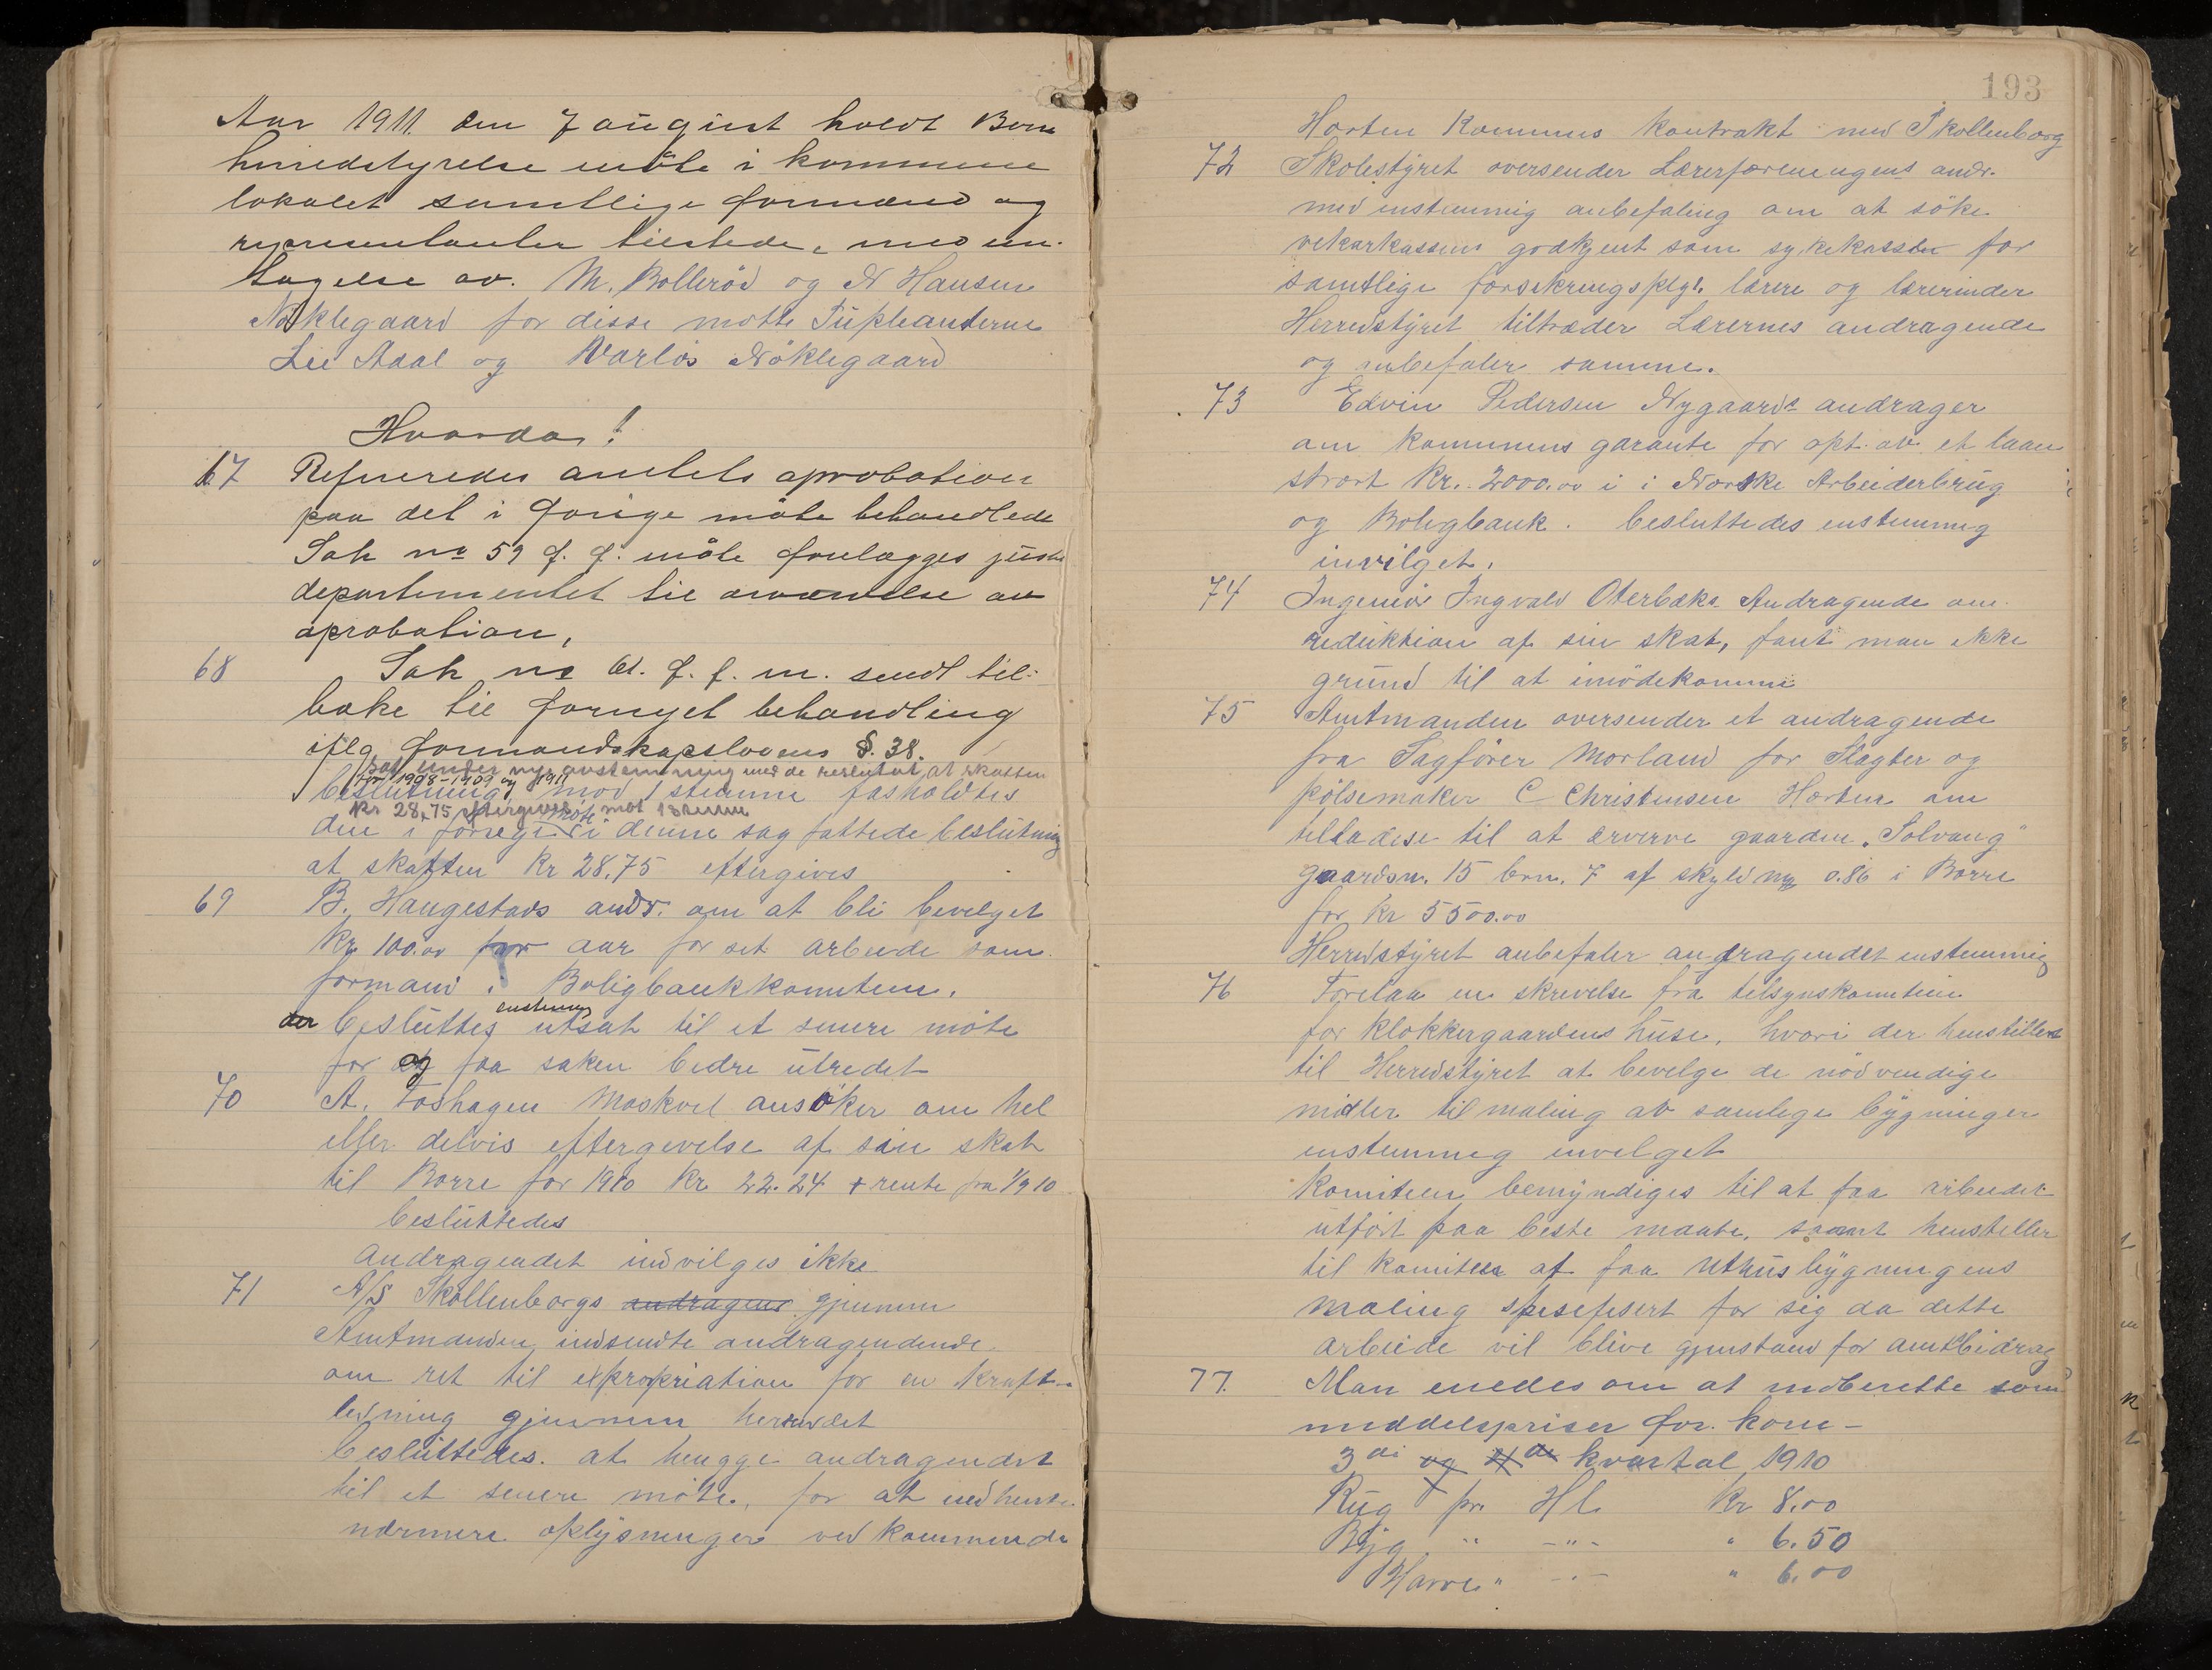 Aar 1911 den 7 august holdt Borre
herredstyrelse möte i kommune
lokalet samtlige formænd og
representanter tilstede, med un-
tagelse av. M. Bollerød og N Hansen
Nöklegaard for disse mötte Supleanterne
Lie Adal og Varlös Nöklegaard
Hvorda!
67 Refneredes amtets aprobation
paa det i forrige möte behandlede
Sak no 59 f. f. möte forlægges
departementet til avænelse av
aprobation,
68 Sak no 61. f. f. m. sendt til-
bake til fornyet behandling
iflg formandskapslovens §. 38.
sat under ny avstemning med de reslutat, at skatten
for 1908-1909 og 1911
beslutning mod 1 stemme fasholdtes
Kr 28,75 eftergives mot 1 stemme
den i forrege möte i denne sag fattede beslutning
at skatten Kr 28,75 eftergives
69 B. Haugestads andr. om at bli bevelget
Kr 100.00 for aar for set arbeide som
formand i Boligbankkomiteen.
enstemig
der besluttes utsat til et senere möte
for og faa saken bedre utredet
70 A. Foshagen Moskvel ansöker om hel
eller delvis eftergevelse af sin skat
til Borre for 1910 Kr 22.24 + rente fra 1/9 10
besluttedes
andragendet indvilges ikke
71 A/S Skollenborgs andragend gjennem
Amtmanden indsendte andragendende
om ret til expropriation for en kraft-
ledning gjennem herredet
besluttedes. at hengge andragendet
til et senere möte, for at indhente
nærmere oplysninger ved kommende
193
Horten Kommunes kontrakt med Skollenborg
72 Skolestyret oversender Lærerforeningens andr.
med enstemmig anbefaling om at söke
vekarkassens godkjent som sykekassen for
samtlige forsekringsplgt. lærere og lærerinder
Herredstyret tiltræder Lærernes andragende
og anbefaler samme.
73 Edvin Pedersen Nygaards andrager
om kommunens garante for opt. av et laan
stort Kr. 2000.00 i i Norske Arbeiderbrug
og Boligbank. besluttedes enstemmig
invilget.
74 Ingeniör Ingvald Oterbæks Andragende om
reduktion af sin skat, fant man ikke
grund til at imödekomme
75 Amtmanden oversender et andragende
fra Sagförer Morland for Slagter og
pölsemaker C Christensen Horten om
tilladese til at ærverve gaarden „Solvang“
gaardsn. 15 brn. 7 af skyld mg 0.86 i Borre
for Kr 5500.00
Herredstyret anbefaler andragendet enstemmig
76 Forelaa en skrevelse fra telsynskomiteen
for klokkergaardens huse, hvori der henstilles
til Herredstyret at bevelge de nödvendige
midler til maling av samlege bygninger
enstemmeg envelget
Komiteen bemyndiges til at faa arbeidet
utfört paa beste maate, samt henstelles
til komiteen at faa uthusbygningens
maling spesefisert for sig da dette
arbeide vil blive gjenstand for amtbidrag
77. Man enedes om at indberette som
middelspriser for korn-
3die og 4de kvartal 1910
Rug pr. Hl. Kr 8.00
Byg " -"- " 6.50
Havre " -"- " 6.00